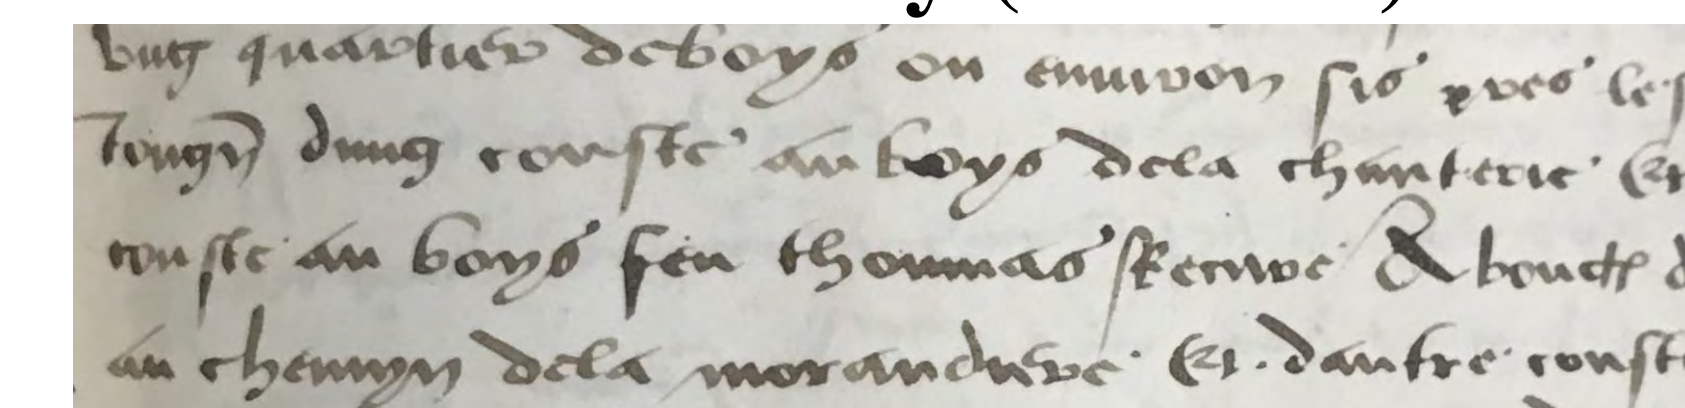 ung quartier de boys ou environ sis pres les
joign dung couste au boys de la chanterie Et
couste au boys feu thommas & bout d
au chemyn de la Et dautre couste